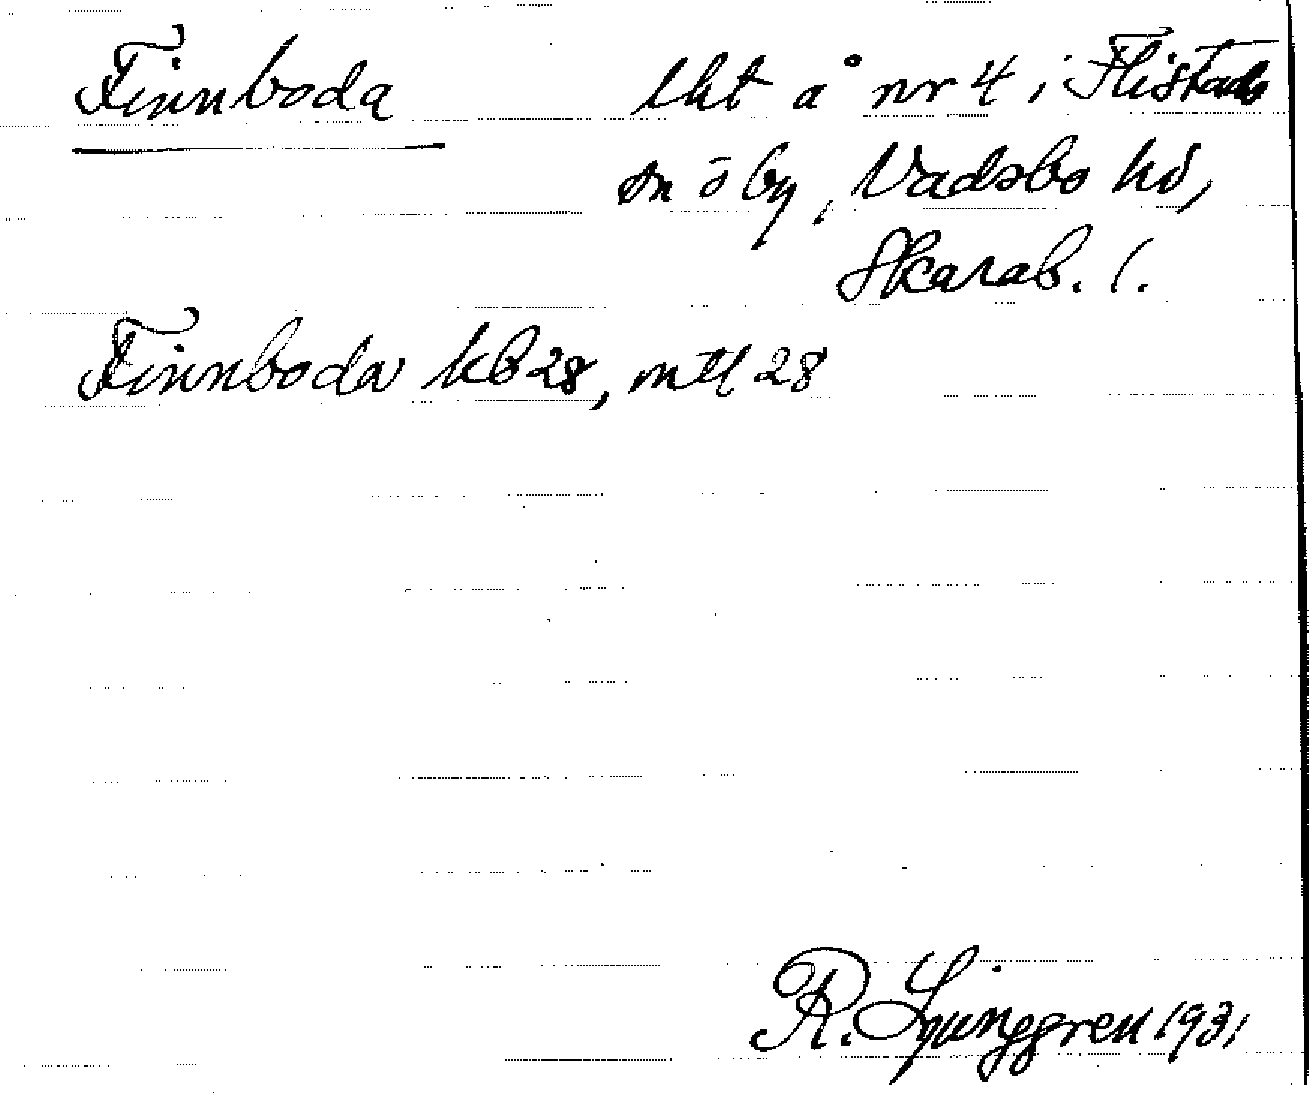 Finnboda lht å nr 4 i Flistads
sn o by, Vadsbo hd,
Skarab. l.
Finnboda kb 28, mtl 28
R. Ljunggren 1931